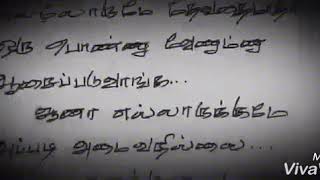 எல்லாருமே தேவதைமாதிரி
ஒரு பொண்ணு வேணும்னு
ஆசைப்படுவாங்க...
ஆனா எல்லாருக்குமே
அப்படி அமைவதில்லை...
Viva